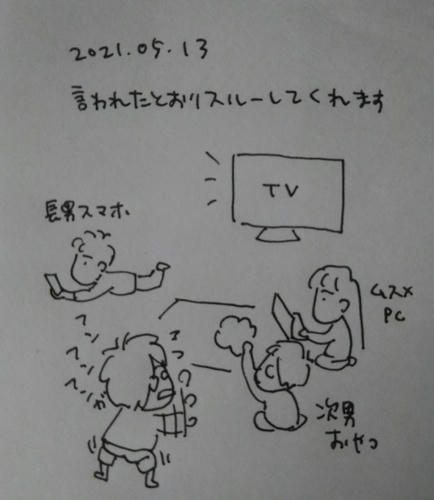 2021.05.13
言われたとおりスルーしてくれます
TV
長男スマホ
ムスメ
PC
次男
おやつ